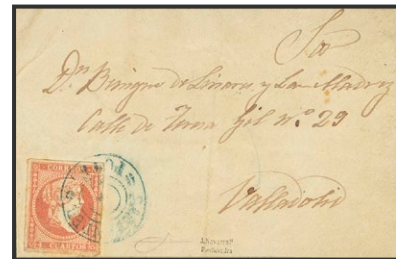 Sor
Dn. Benigno de Linares y La Madriz
Calle de Teresa Gil nº 29
Valladolid
CORREOS
4 CUARTOS